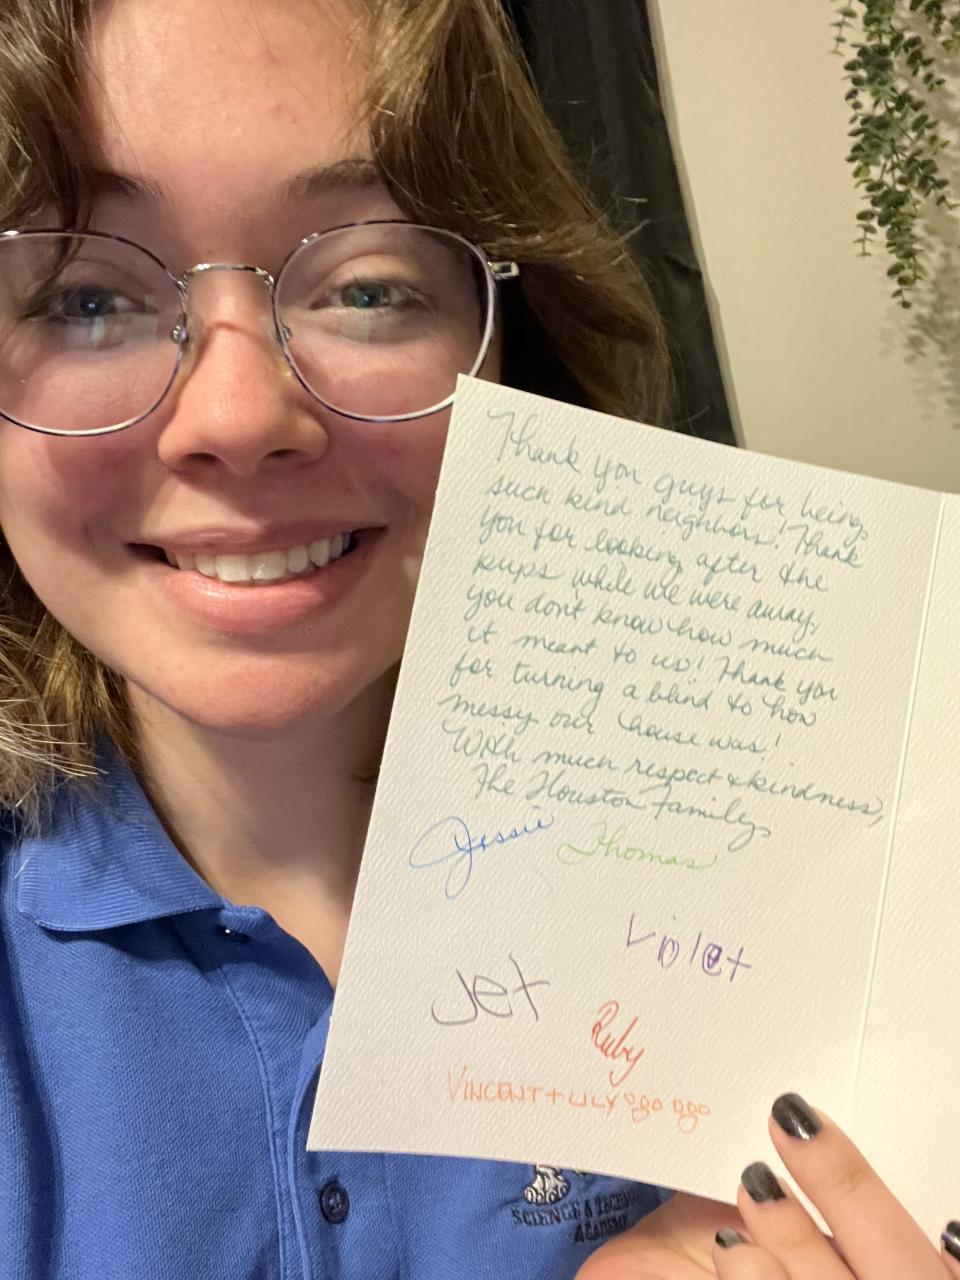 Thank you guys for being
such kind neighbors! Thank
you for looking after the
pups while we were away,
you don't know how much
it meant to us! Thank you
for turning a blind to how
messy our house was!
With much respect & kindness,
The Houston Family
Jessie Thomas
Violet
Jet
Ruby
VINCENT + LILY
SCIENCE &
ACADEMY